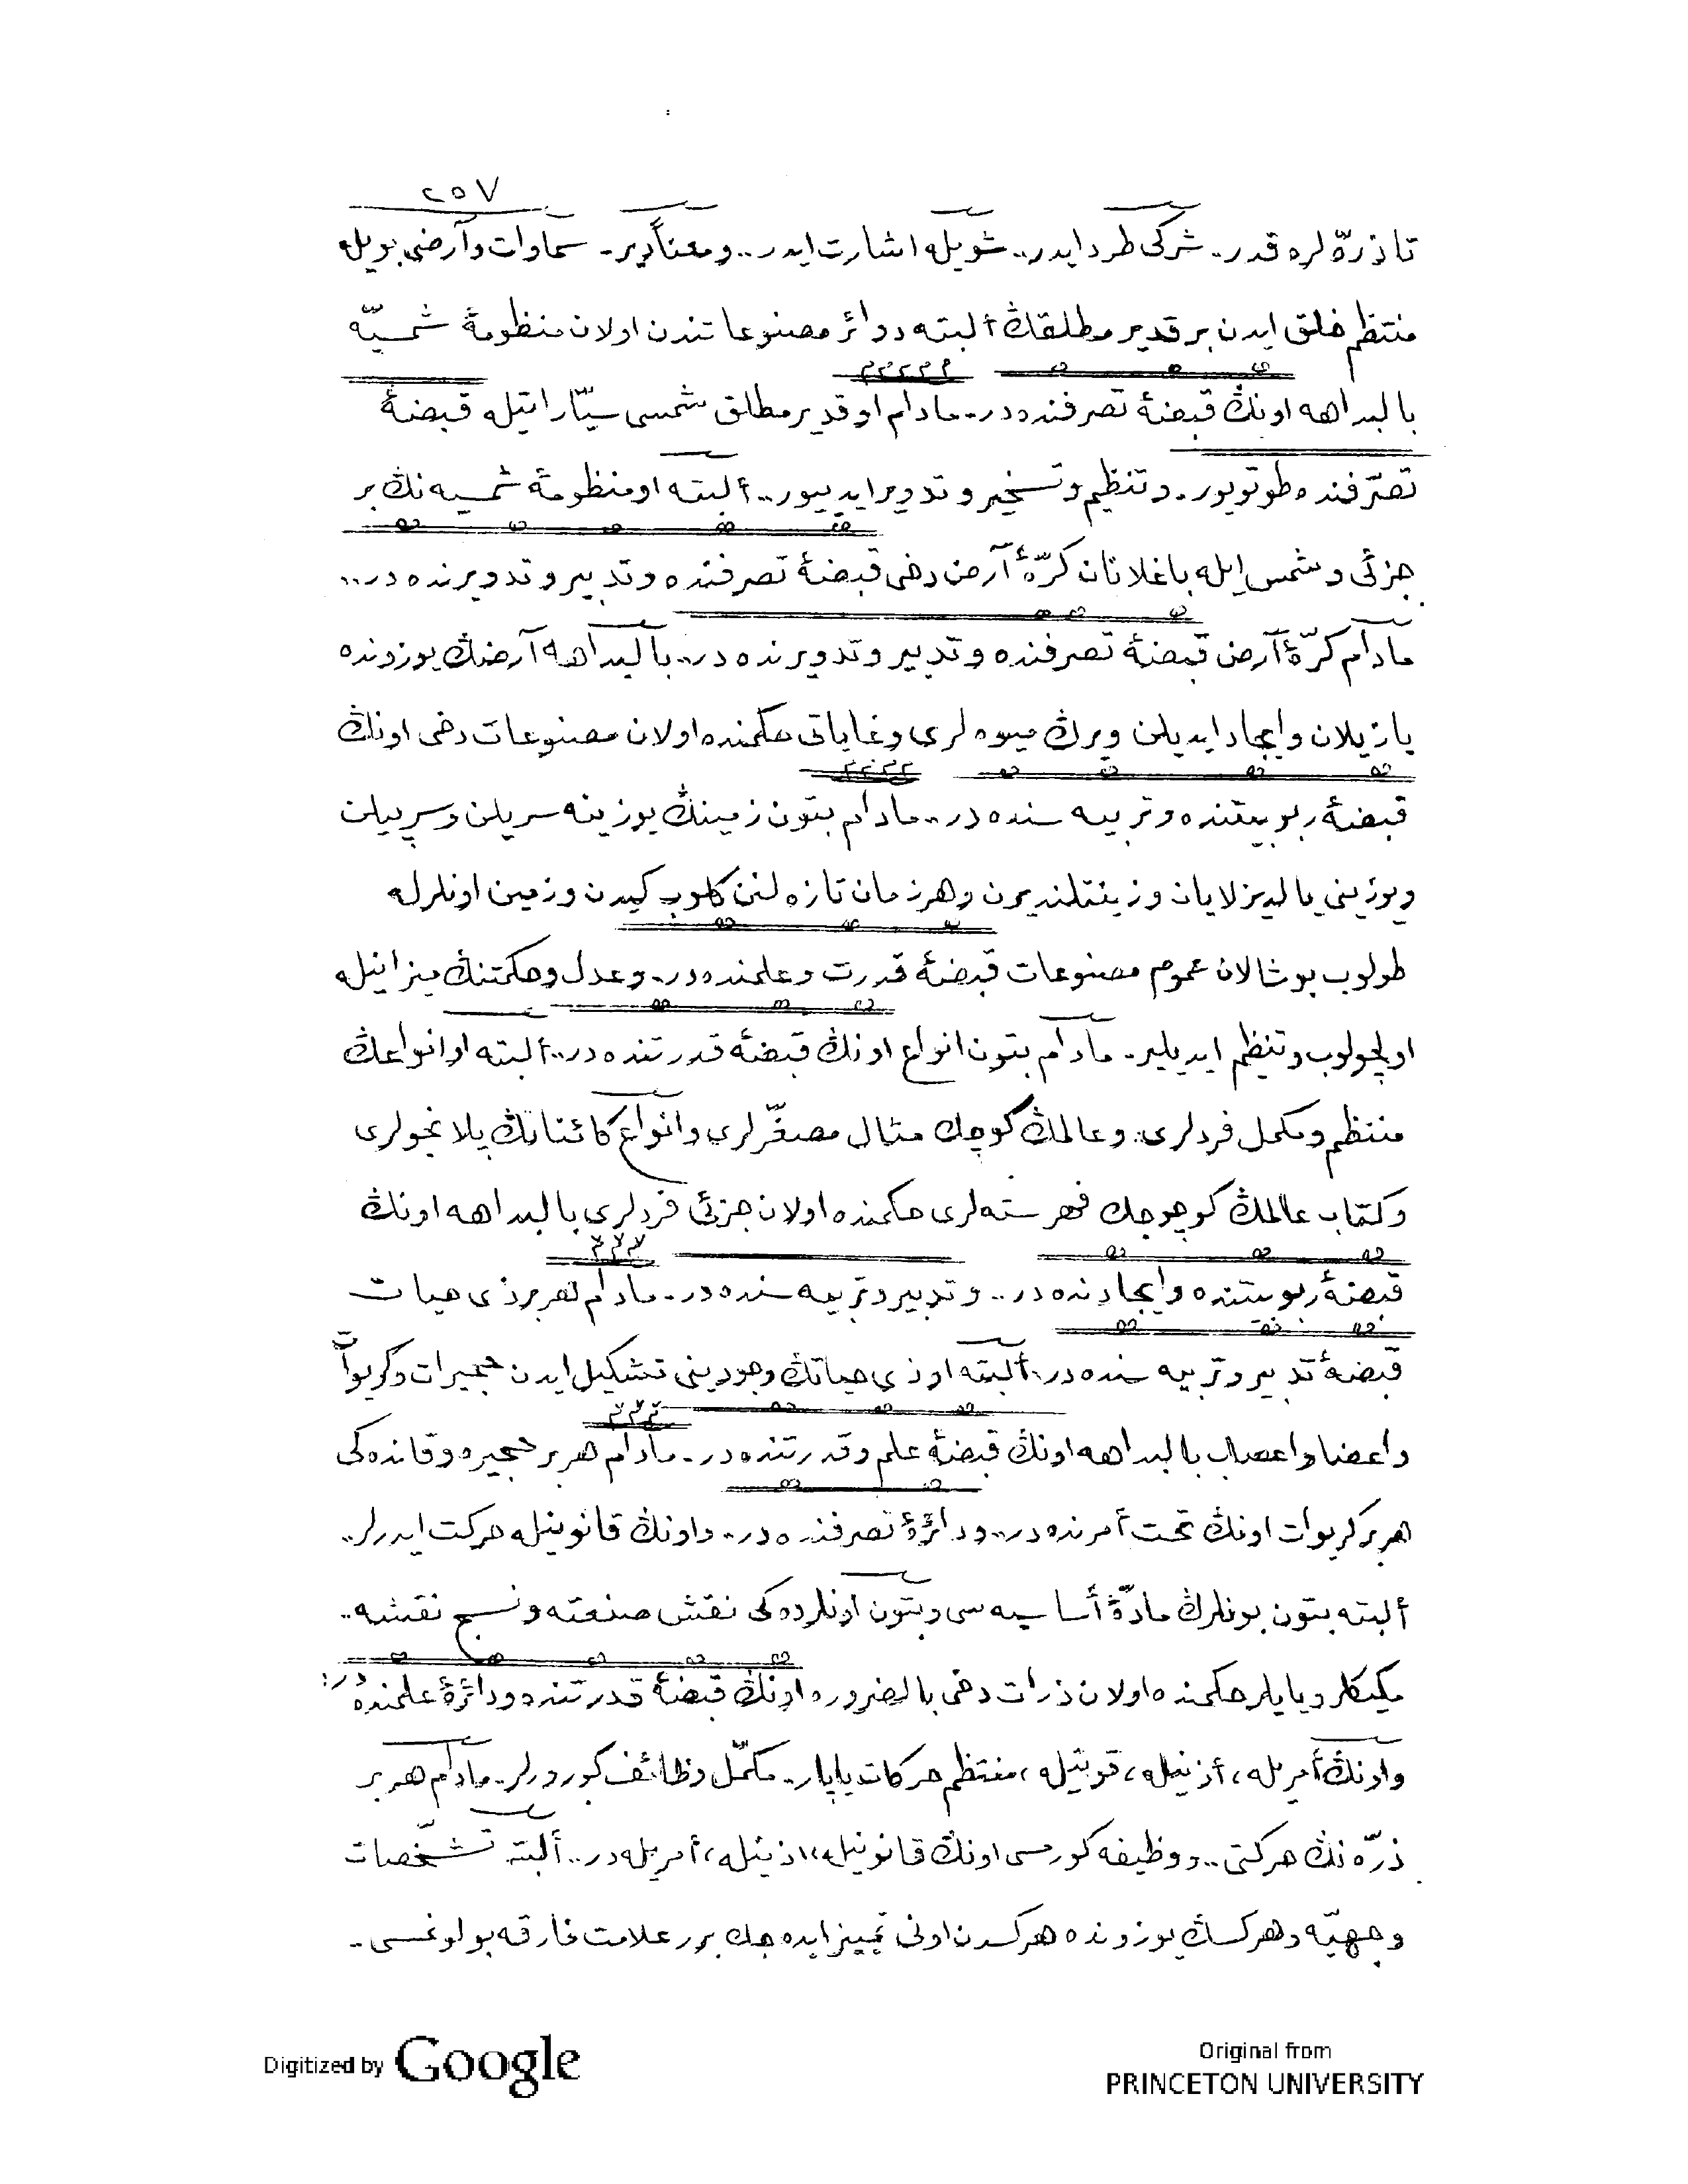 ٢٥٧
تا ذرّه لره قدر. شركى طرد ايدر.. شويله اشارت ايدر.. و معناً دير. سماوات و آرضى بويله
منتظم خلق ايدن بر قدير مطلقڭ ألبته دوائر مصنوعاتندن اولان منظومۀ شمسيّه
بالبداهه اونڭ قبضۀ تصرفنده در. مادام او قدير مطلق شمسى سيّاراتيله قبضۀ
تصرّفنده طوتويور. و تنظيم و تسخير و تدوير ايدييور.. ألبته او منظومۀ شمسيه نڭ بر
جزئى و شمس ايله باغلانان كرّۀ آرض دخى قبضۀ تصرفنده و تدبير و تدويرنده در..
مادام كرّۀ آرض قبضۀ تصرفنده و تدبير و تدويرنده در.. بالبداهه آرضڭ يوزونده
يازيلان و ايجاد ايديلن ويرڭ ميوه لرى و غاياتى حكمنده اولان مصنوعات دخى اونڭ
قبضۀ ربوبيتنده و تربيه سنده در.. مادام بتون زمينڭ يوزينه سريلن و سرپيلن
و يوزينى يالديزلايان و زينتلنديرن و هر زمان تازه لنن كلوب كيدن و زمين اونلرله
طولوب بوشالان عموم مصنوعات قبضۀ قدرت و علمنده در. و عدل و حكمتنڭ ميزانيله
اولچولوب و تنظيم ايديلير. مادام بتون انواع اونڭ قبضۀ قدرتنده در.. ألبته او انواعڭ
منتظم و مكمل فردلرى. و عالمڭ كوچك مثال مصغّرلرى و انواع كائناتڭ بلانچولرى
و كتاب عالمڭ كوچوجك فهرسته لرى حكمنده اولان جزئى فردلرى بالبداهه اونڭ
قبضۀ ربوبيتنده و ايجادنده در.. و تدبير و تربيه سنده در. مادام هر بر ذى حيات
قبضۀ تدبير و تربيه سنده در. ألبته او ذى حياتڭ وجودينى تشكيل ايدن حجيرات و كريوات
و اعضا و اعصاب بالبداهه اونڭ قبضۀ علم و قدرتنده در. مادام هر بر حجيره و قانده كى
هر بر كريوات اونڭ تحت أمرنده در.. و دائرۀ تصرفنده در.. و اونڭ قانونيله حركت ايدرلر..
ألبته بتون بونلرڭ مادّۀ أساسيه سى و بتون اونلرده كى نقش صنعته و نسج نقشه..
مكيكلر و يايلر حكمنده اولان ذرات دخى بالضروره اونڭ قبضۀ قدرتنده و دائرۀ علمنده در:
و اونڭ أمريله، أذنيله، قوتيله، منتظم حركات ياپار. مكمّل وظائف كورورلر. مادام هر بر
ذرّه نڭ حركتى.. و وظيفه كورمسى اونڭ قانونيله، اذنيله، أمريله در.. ألبته تشخّصات
وجهيّه و هركسڭ يوزونده هركسدن اونى تمييز ايده جك برر علامت فارقه بولونمسى.
Digitized by Google
Original from
PRINCETON UNIVERSITY